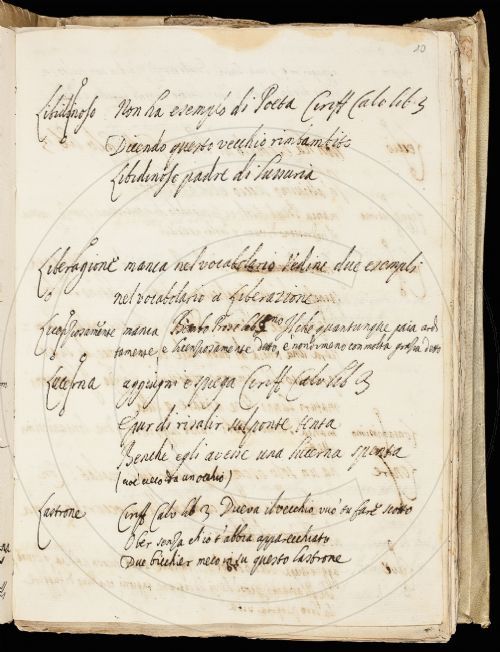 10
Libidinoso Non ha esemplo di Poeta Ciriff Calv lib 3
Dicendo questo vecchio rimbambito
Libidinoso padre di Lussuria
Liberagione manca nel vocabolario Vedine due esempli
nel vocabolario a Liberazione
Licenziosamente manca Bembo Prose lib Il che quantunque paia ardi
tamente e licenziosamente detto, è nondimeno con molta grazia detto
Lucerna aggiugni e spiega Ciriff Calv lib 3
E pur di risalir sul ponte tenta
Benche egli avesse una lucerna spenta
(cioè cieco da un occhio)
Castrone Ciriff Calv lib 3 Diceva il vecchio vuo tu far scotto
O ber senza ch io t abbia apparecchiato
Due bicchier meco in su questo Castrone